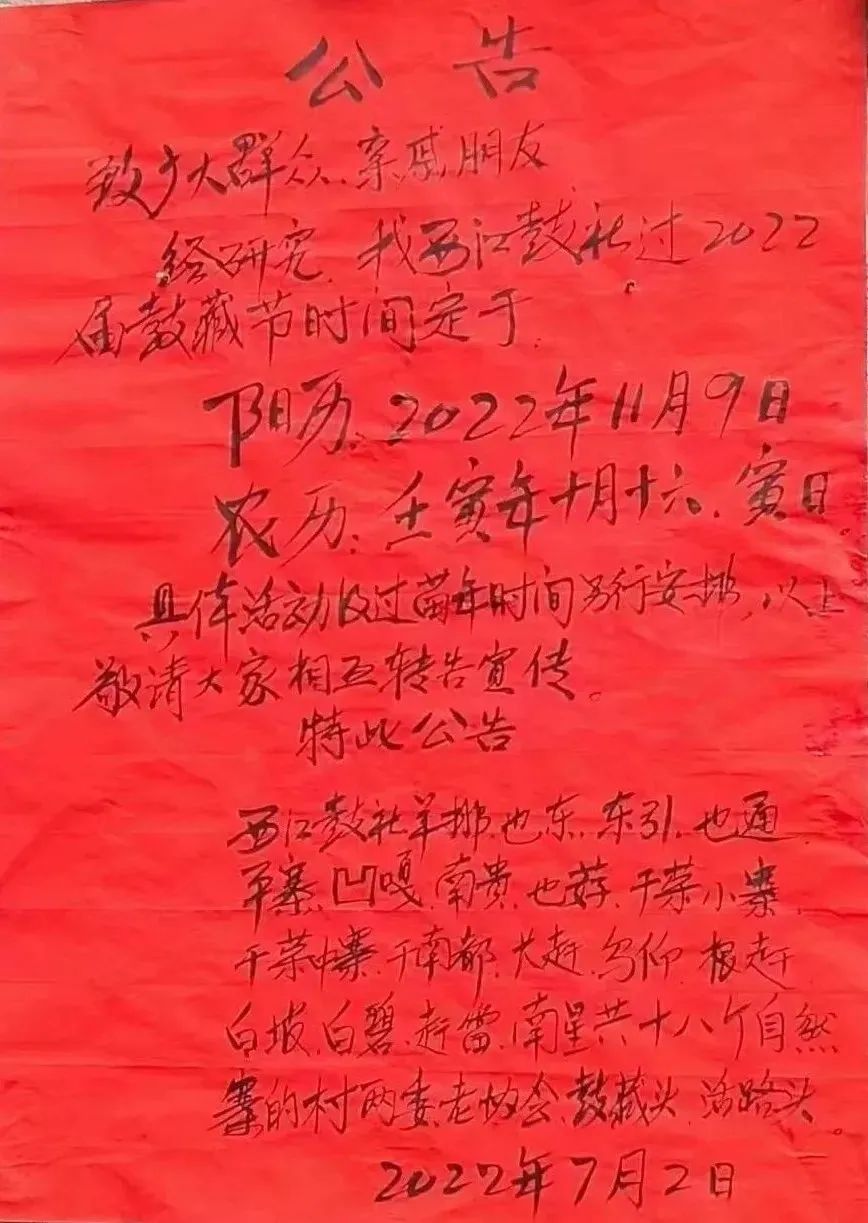 公告
致广大群众、亲戚朋友
经研究,我西江鼓社过2022
届鼓藏节时间定于:
阳历:2022年11月9日
农历:壬寅年十月十六、寅日。
具体活动及过苗年时间另行安排,以上
敬请大家相互转告宣传。
特此公告
西江鼓社羊排、也东、东引、也通、
平寨、凹嘎、南贵、也薅、干荣小寨、
干荣中寨、干南都、大赶、乌仰、根赶、
白坡、白碧、赶雷、南星共十八个自然
寨的村两委、老协会、鼓藏头、活路头。
2022年7月2日